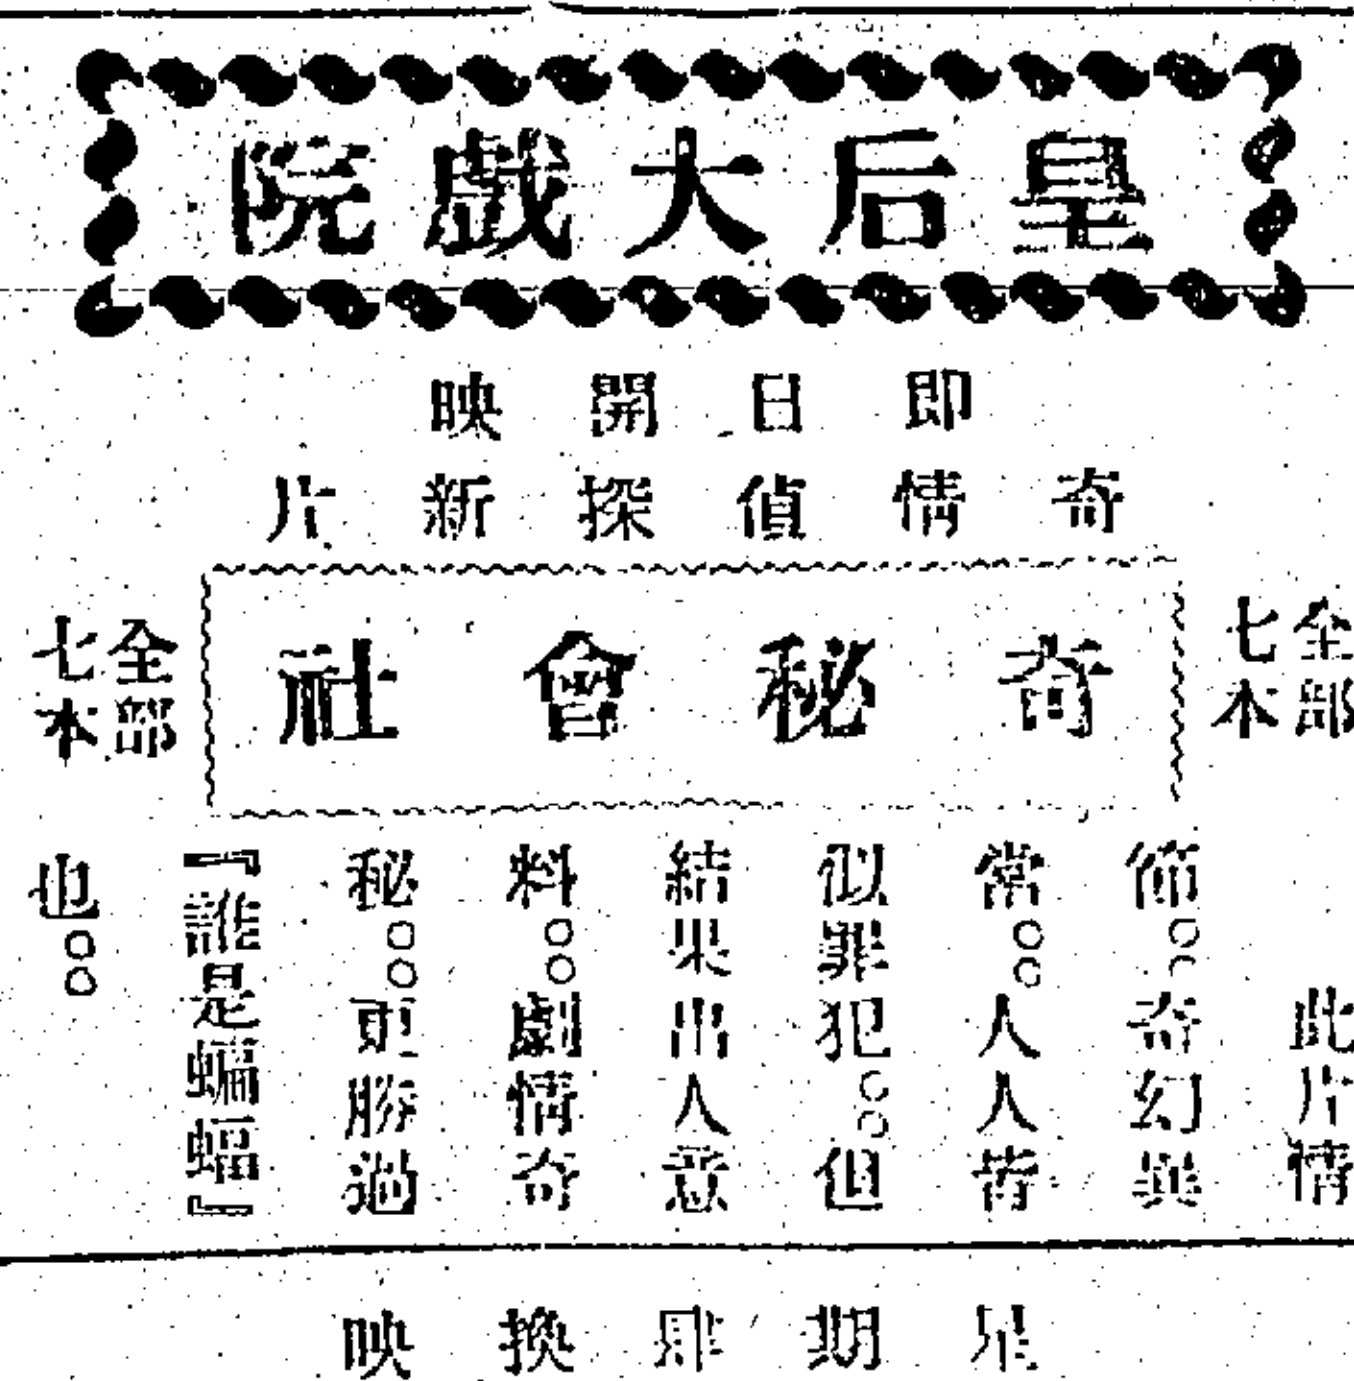 皇后大戲院
即日開映
奇情偵探新片
全部
七本
奇秘會社
全部
七本
此片情
節○○奇幻異
常○○人人皆
似罪犯○○但
結果出人意
料○○劇情奇
秘○○更勝過
『誰是蝙蝠』
也○○
星期肆換映